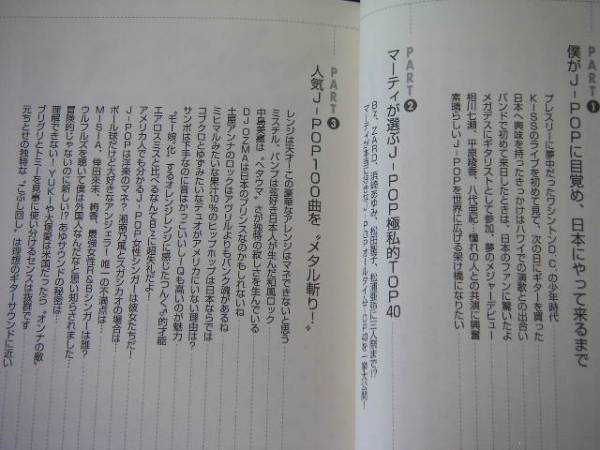 PART 1
僕がJ-POPに目覚め、日本にやって来るまで
プレスリーに夢中だったワシントンD.C.の少年時代
KISSのライブを初めて見て、次の日にギターを買った
日本へ興味を持ったきっかけはハワイでの演歌との出合い
バンドで初めて来日したときは、日本のファンに驚いたよ
メガデスにギタリストとして参加、夢のメジャーデビュー
相川七瀬、平原綾香、八代亜紀…憧れの人との共演に興奮
素晴らしいJ-POPを世界に広げる架け橋になりたい
PART 2
マーティが選ぶJ-POP極私的TOP40
B'z、ZARD、浜崎あゆみ、松田聖子、松浦亜弥に三人祭まで!?
マーティが本当に好きな"J-POPオールタイム"TOP40を一挙大公開!
PART 3
人気J-POP100曲を〝メタル斬り!〟
レンジは天才!この豪華なアレンジはマネできないと思う
ミスチル、バンプは弦好き日本人が生んだ和風ロック
中島美嘉は〝ヘタウマ〟さが独特の寂しさを生んでいる
DJ OZMAは日本のプリンスなのかもしれないね
土屋アンナのロックはアヴリルよりもパンク魂があるね
ミヒマルみたいな果汁10%のヒップホップは日本ならでは
コブクロとゆずみたいなデュオがアメリカにいない理由は?
サンボは下手なのに音はかっこいいしIQも高いのが魅力
〝モー娘〟化〟するオレンジレンジに感じたつんく♂的才能
エアロスミスと比べるなんてB'zに超失礼だよ!
アメリカ人でも分かるJ-POP女性シンガーは彼女たちだ!
J-POPは洋楽のマネ?湘南乃風とスガシカオの場合は…
ボール球だけど大好きなアンジェラー唯一の不満点は…
MISIA、倖田來未、絢香、最強女性R&Bシンガーは誰?
ウルフルズを聴いて僕は外国人なんだなと思い知らされました…
冒険的じゃないのに新しい!?あゆサウンドの秘密は…
理解できない!YUKIや大塚愛は米国だったら〝オンナの敵〟
ブリグリとトミーを見事に使い分けるセンスは抜群です
元ちとせの独特な〝こぶし回し〟は理想のギターサウンドに近い